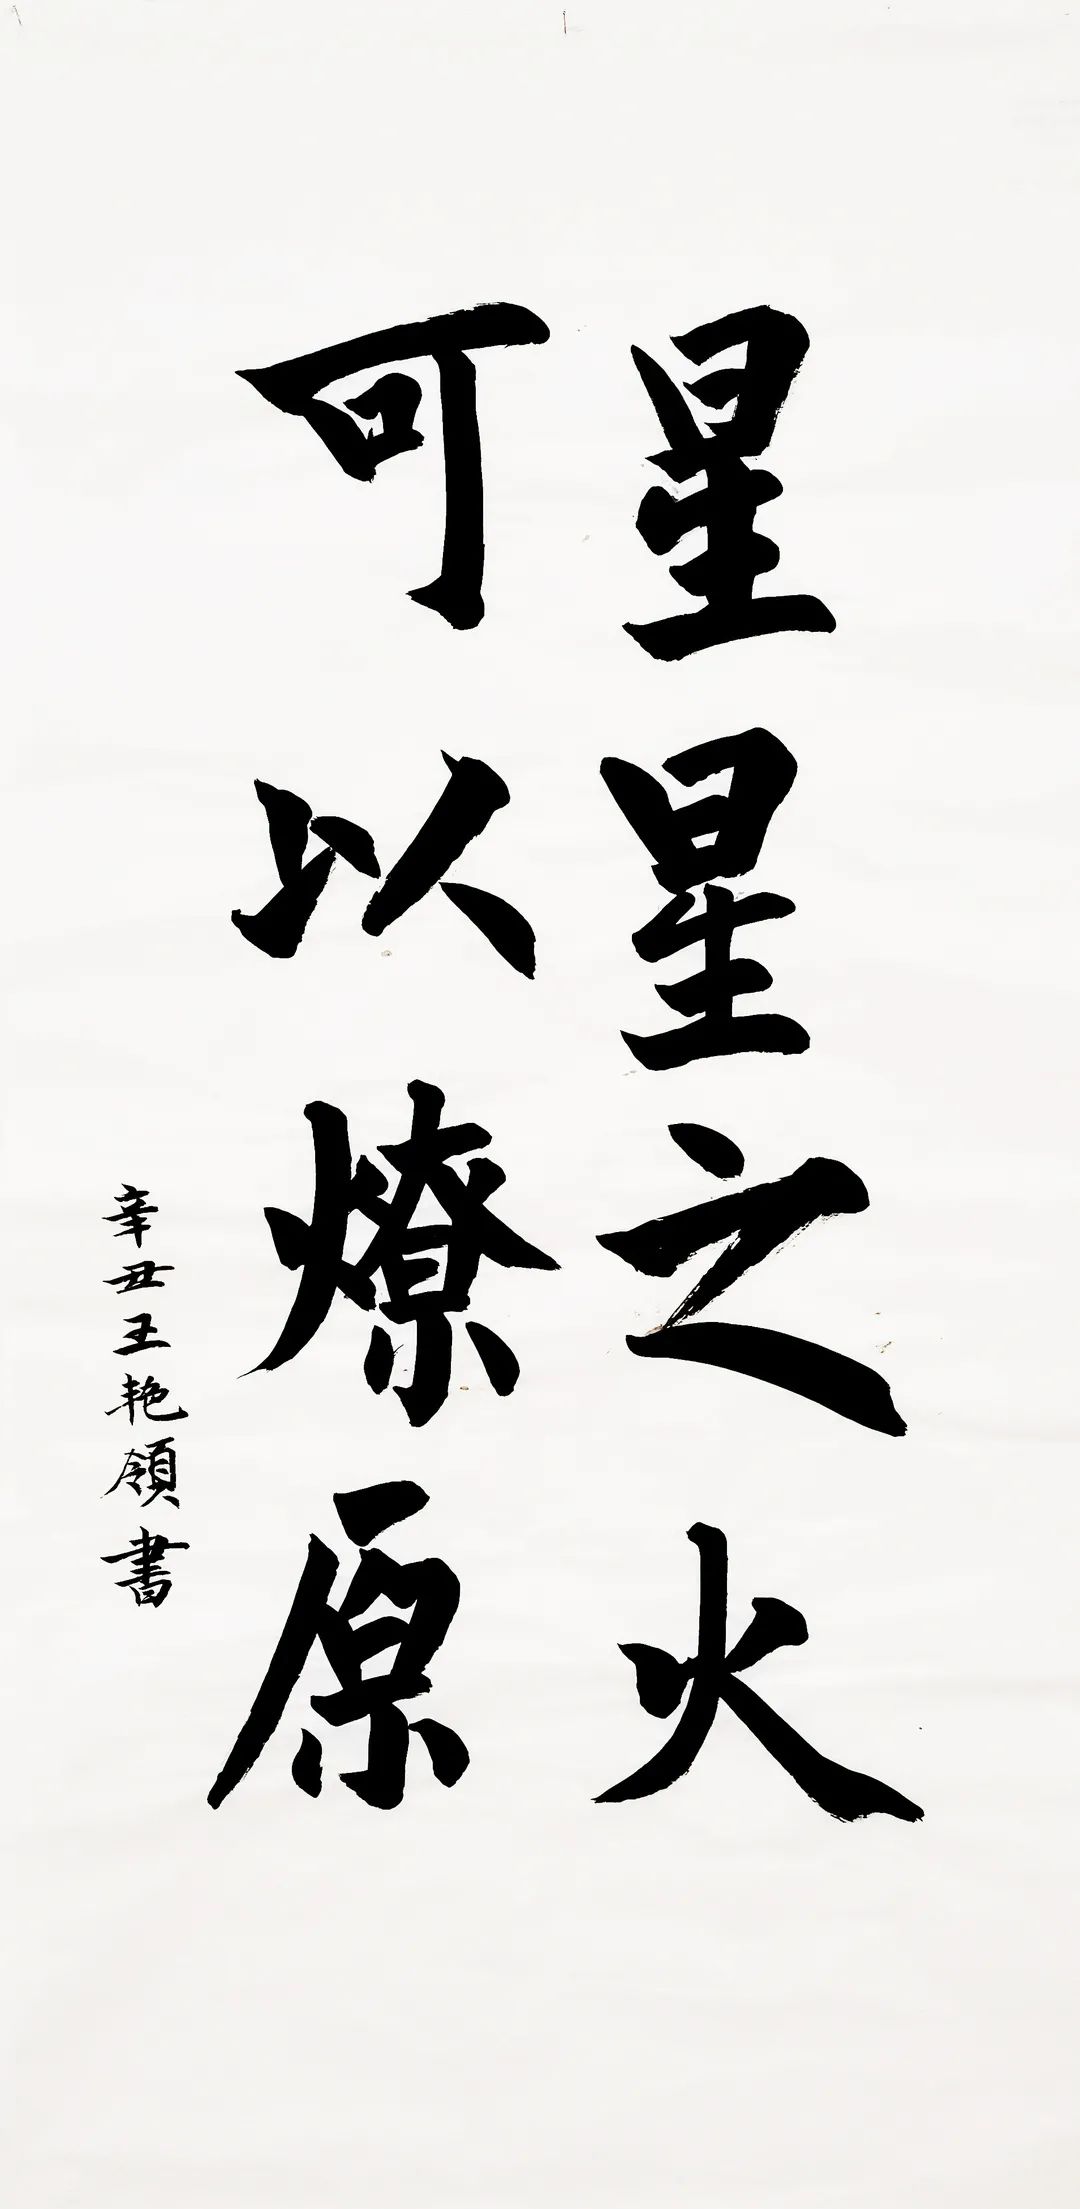 星星之火
可以燎原
辛丑王艳領書